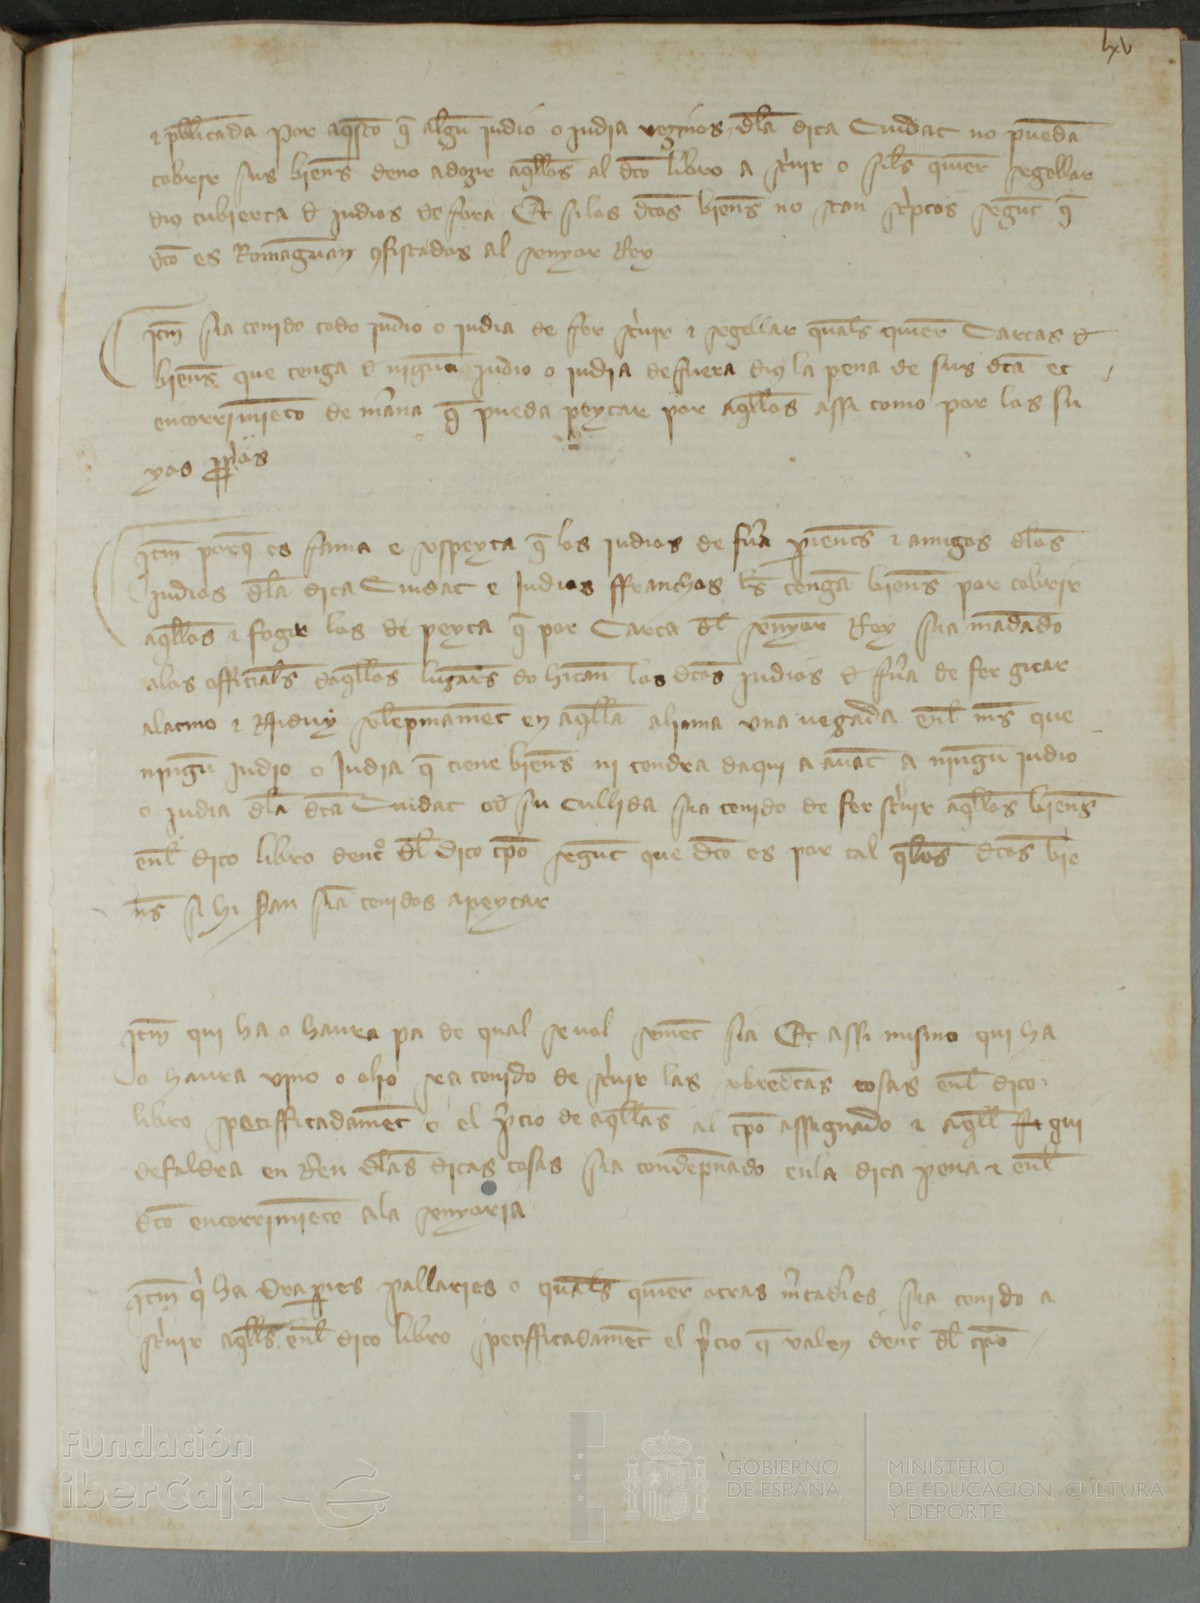 lxv
⁊ publicada por aq̄sto q̄ algū judio o judia vezinos dl̄a dita Ciudat no puedā
cobrir sus biens̄ deuo adozir aq̄llos al dc̄o libro a sc̄uir o sil̄s quier̄ segellar
dius cubierta d̄ judios de fora Et si los dc̄os biens̄ no seran sc̄ptos segūt q̄
dc̄o es Romāgan ꝯfiscados al senyor Rey
Itm̄ sia tenido todo judio o judia de fer sc̄uir ⁊ segellar quals̄ quier̄ Cartas d̄
biens̄ que tenga d̄ nigūn judio o judia de fuera dius la pena de sus dc̄a et
encorrimiēto de māna q̄ pueda peytar por aq̄llos assi como por los su
yos pp̄ios
Itm̄ porq̄ es fama e sospeyta q̄ los judios de fūa pients̄ ⁊ amigos dl̄os
judios dl̄a dita Ciudat e judios ffranchos ls̄ tengā biens̄ por cobrir
aq̄llos ⁊ fogir los de peyta q̄ por Carta dl̄ senyor̄ Rey sia mādado
alos officials̄ daq̄llos lugars̄ do hitan̄ los dc̄os judios d̄ fūa de fer gitar
alatmo ⁊ Niduy solepnamēt en aq̄lla aljama una uegada enl̄ mes̄ que
ningū judio o judia q̄ tiene biens̄ ni tendra daqui a auāt a ningū judio
o judia dl̄a dc̄a Ciudat od̄ su Cullida sia tenido de fer sc̄uir aq̄llos biens̄
enl̄ dito libro dentº dl̄ dito tp̄o segūt que dc̄o es por tal q̄los dc̄os biē
ns̄ si hi seran siā tenidos apeytar
Itm̄ qui ha o haura pa de qual se uol semēt sia Et assi mismo qui ha
o haura vino o olio sea tenido de sc̄uir las sobredc̄as cosas enl̄ dito
libro specifficadamēt o el p̄cio de aq̄llas al tp̄o assignado ⁊ aq̄ll qui
defaldra en Ren dl̄as ditas cosas sia condēpnado enla dita pena ⁊ enl̄
dc̄o encorrimiēto ala senyoria
Itm̄ q̄i ha drapies pallaries o quals̄ quier̄ otras m̄cadies sia tenido a
sc̄uir aq̄lls̄ enl̄ dito libro specifficadamēt el p̄cio q̄ valen dentº dl̄ tp̄o
Fundación
iberCaja
GOBIERNO
DE ESPAÑA
MINISTERIO
DE EDUCACIÓN, CULTURA
Y DEPORTE